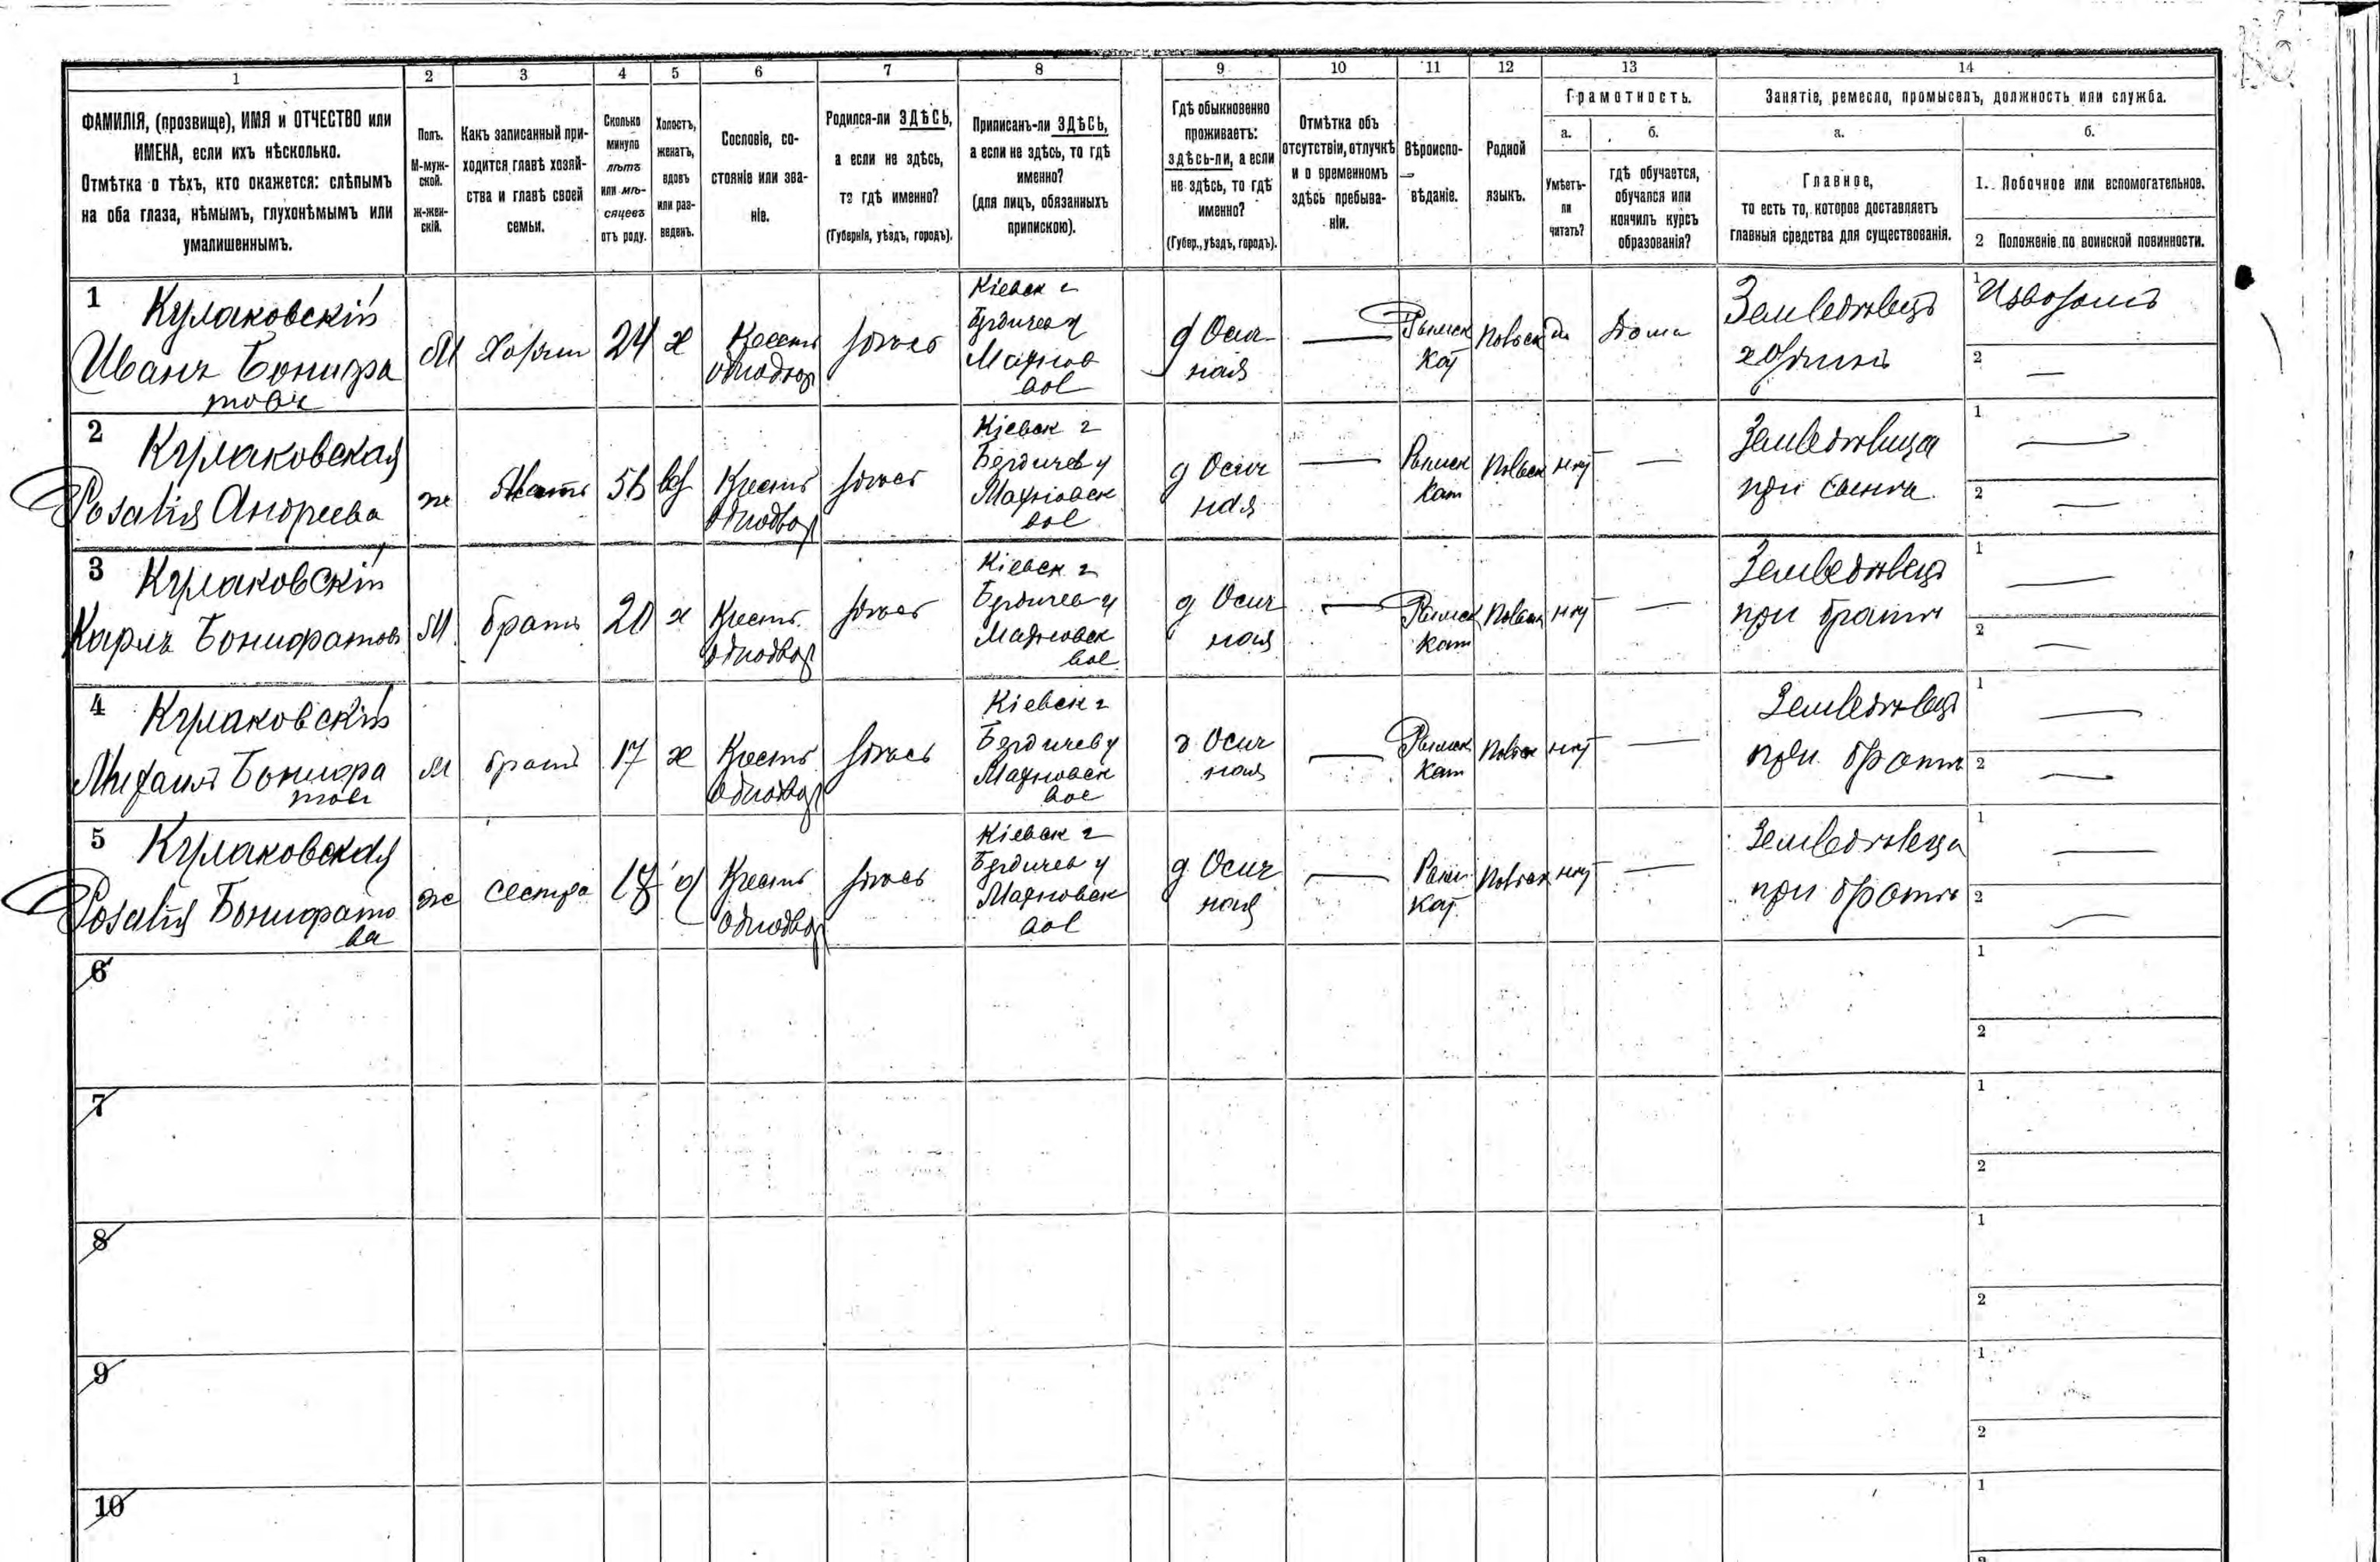 1 2 3 4 5 6 7 8 9 10 11 12 13 14
ФАМИЛІЯ, (прозвище), ИМЯ и ОТЧЕСТВО или
ИМЕНА, если ихъ нѣсколько.
Отмѣтка о тѣхъ, кто окажется: слѣпымъ
на оба глаза, нѣмымъ, глухонѣмымъ или
умалишеннымъ.
Полъ.
М-муж-
ской.
Ж-жен-
скій.
Какъ записанный при-
ходится главѣ хозяй-
ства и главѣ своей
семьи.
Сколько
минуло
лѣтъ
или мѣ-
сяцевъ
отъ роду.
Холостъ,
женатъ,
вдовъ
или раз-
веденъ.
Сословіе, со-
стояніе или зва-
ніе.
Родился-ли ЗДѢСЬ,
а если не здѣсь,
то гдѣ именно?
(Губернія, уѣздъ, городъ).
Приписанъ-ли ЗДѢСЬ,
а если не здѣсь, то гдѣ
именно?
(для лицъ, обязанныхъ
припискою).
Гдѣ обыкновенно
проживаетъ:
здѣсь-ли, а если
не здѣсь, то гдѣ
именно?
(Губер., уѣздъ, городъ).
Отмѣтка объ
отсутствіи, отлучкѣ
и о временномъ
здѣсь пребыва-
ніи.
Вѣроиспо-
вѣданіе.
Родной
языкъ.
Грамотность.
а.
Умѣетъ-
ли
читать?
б.
гдѣ обучается,
обучался или
кончилъ курсъ
образованія?
Занятіе, ремесло, промыселъ, должность или служба.
а.
Главное,
то есть то, которое доставляетъ
главныя средства для существованія.
б.
1. Побочное или вспомогательное.
2 Положеніе по воинской повинности.
1 Кулаковскій
Иванъ Бонифа
товъ
М
24
х
Крестъ
однодвор
здѣсь
Кіевск г
Бердичев у
Махнов
вол
д Осич
ная
—
Римск
Кат
Польск
да
Дома
Землед&#1123;лецъ
хозяинъ
1
2 —
2 Кулаковская
Розалія Андреева
ж
Мать
56
вд
Крестъ
однодвор
здѣсь
Кіевск г
Бердичев у
Махновск
вол
д Осич
ная
—
Римск
Кат
Польск
нѣт
—
при сынѣ
1 —
2 —
3 Кулаковскій
Карлъ Бонифатов
М
братъ
20
х
Крестъ
однодвор
здѣсь
Кіевск г
Бердичев у
Махновск
вол
д Осич
ная
—
Римск
Кат
Польск
нѣт
—
Земледѣлецъ
при братѣ
1 —
2 —
4 Кулаковскій
Михаилъ Бонифа
товъ
м
братъ
17
х
Крестъ
однодвор
здѣсь
Кіевск г
Бердичев у
Махновск
вол
д Осич
ная
—
Римск
Кат
Польск
нѣт
—
Земледѣлецъ
при братѣ
1 —
2 —
5 Кулаковская
Розалія Бонифато
ва
ж
сестра
д
Крестъ
однодвор
здѣсь
Кіевск г
Бердичев у
Махновск
вол
д Осич
ная
—
Рим
Кат
Польск
нѣт
—
при братѣ
1 —
2 —
6
1
2
7
1
2
8
1
2
9
1
2
10
1